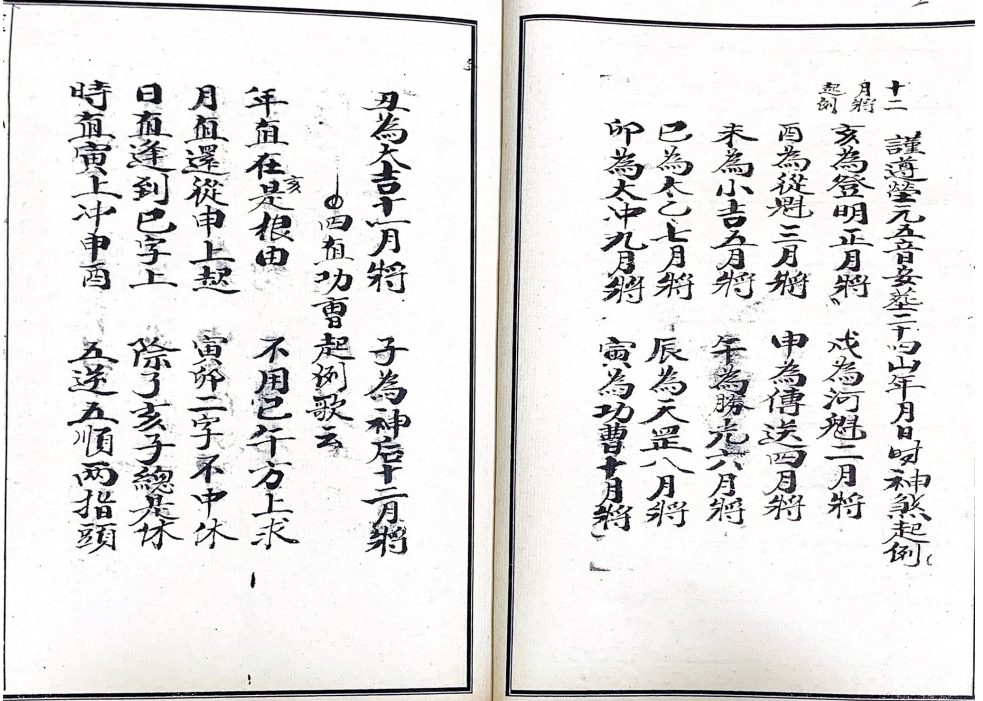 十二
月將
起例
謹遵塋元五音安塟二十四山年月日時神煞起例
亥為登明正月將 戌為河魁二月將
酉為從魁三月將 申為傳送四月將
未為小吉五月將 午為勝光六月將
巳為太乙七月將 辰為天罡八月將
卯為太冲九月將 寅為功曹十月將
丑為大吉十一月將 子為神后十二月將
四直功曹起例歌云
年直在亥是根由 不用巳午方上求
月直還從申上起 寅卯二字不中休
日直逢到巳字上 除了亥子總是休
時直寅上冲申酉 五逆五順兩指頭